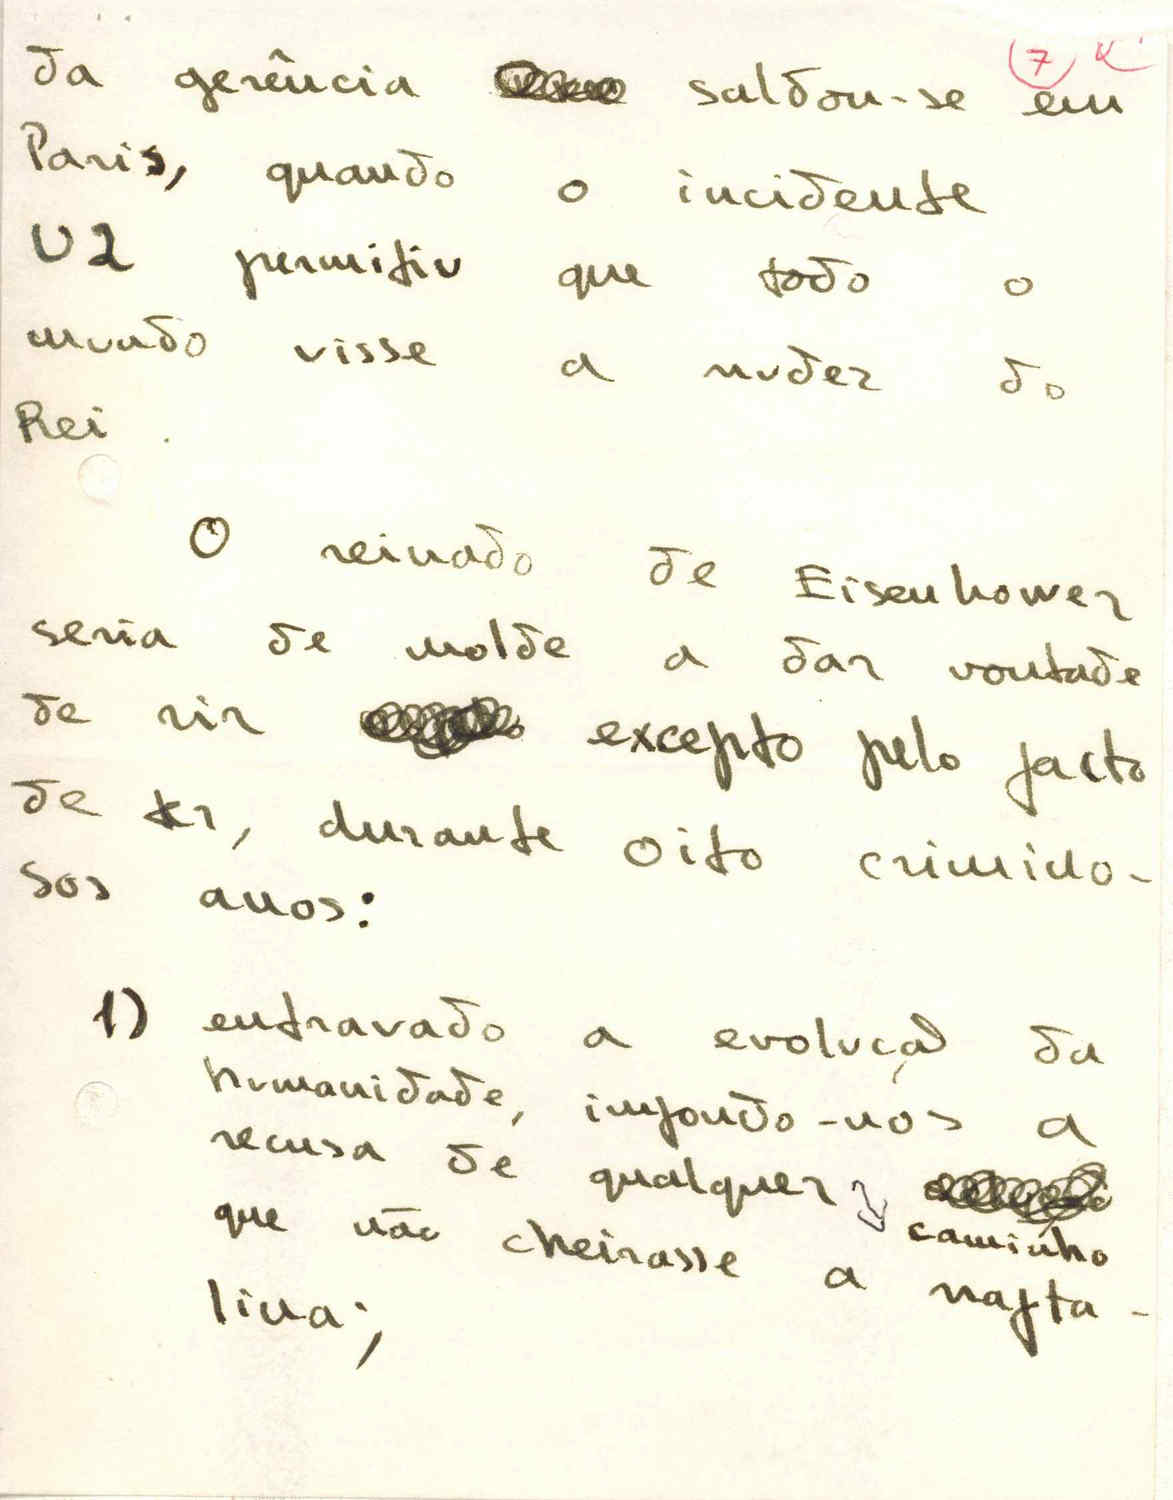 7
da gerência saldou-se em
Paris, quando o incidente
U2 permitiu que todo o
mundo visse a nudez do
Rei.
O reinado de Eisenhower
seria de molde a dar vontade
de rir excepto pelo facto
de ter, durante oito crimino-
sos anos:
1) entravado a evolução da
humanidade, impondo-nos a
recusa de qualquer caminho
que não cheirasse a nafta-
lina;